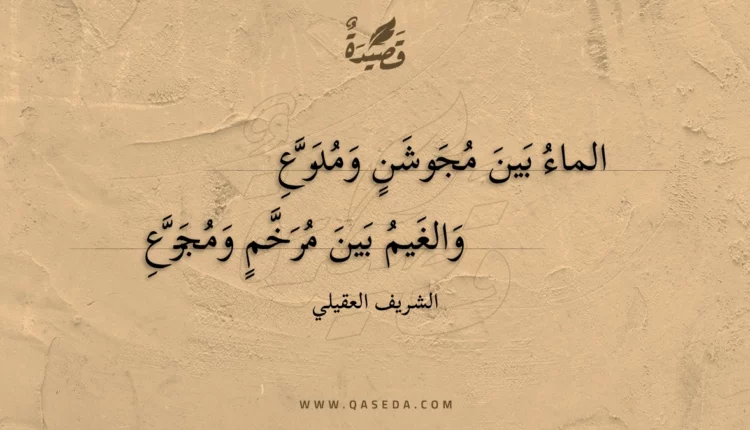 قَصِيْدَةٌ
الماءُ بَينَ مُجَوشَنٍ وَمُدَرَّعِ
وَالغَيمُ بَينَ مُرَخَّمٍ وَمُجَزَّعِ
الشريف العقيلي
WWW.QASEDA.COM